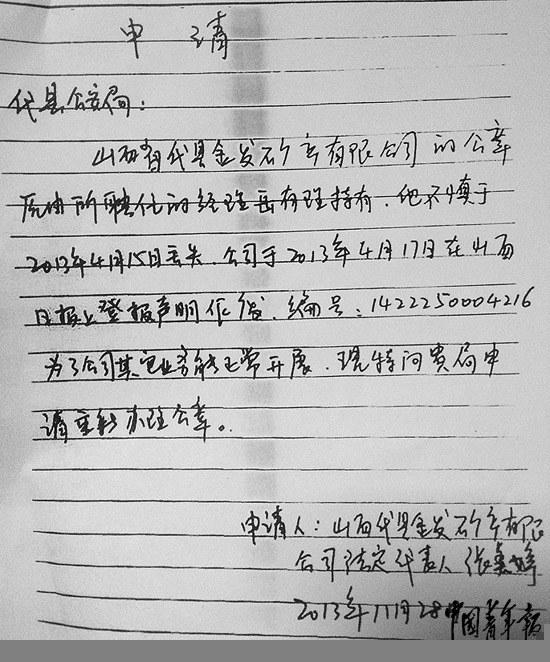 申 请
代县公安局:
山西省代县金发矿产有限公司的公章
原由所聘任的经理岳有理持有,他不慎于
2013年4月15日丢失,公司于2013年4月17日在山西
日报上登报声明作废,编号:1422250004216
为了公司其它业务能正常开展,现特向贵局申
请重新办理公章。
申请人:山西代县金发矿产有限
公司法定代表人 张 婷
2013年11月28
中国青年报